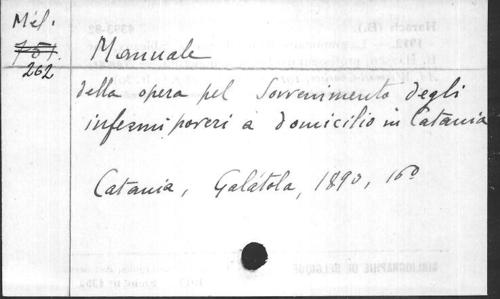 Mél.
151.
262
Manuale
della opera pel Sovvenimento degli
infermi poveri a domicilio in Catania
Catania, Galátola, 1890, 16º